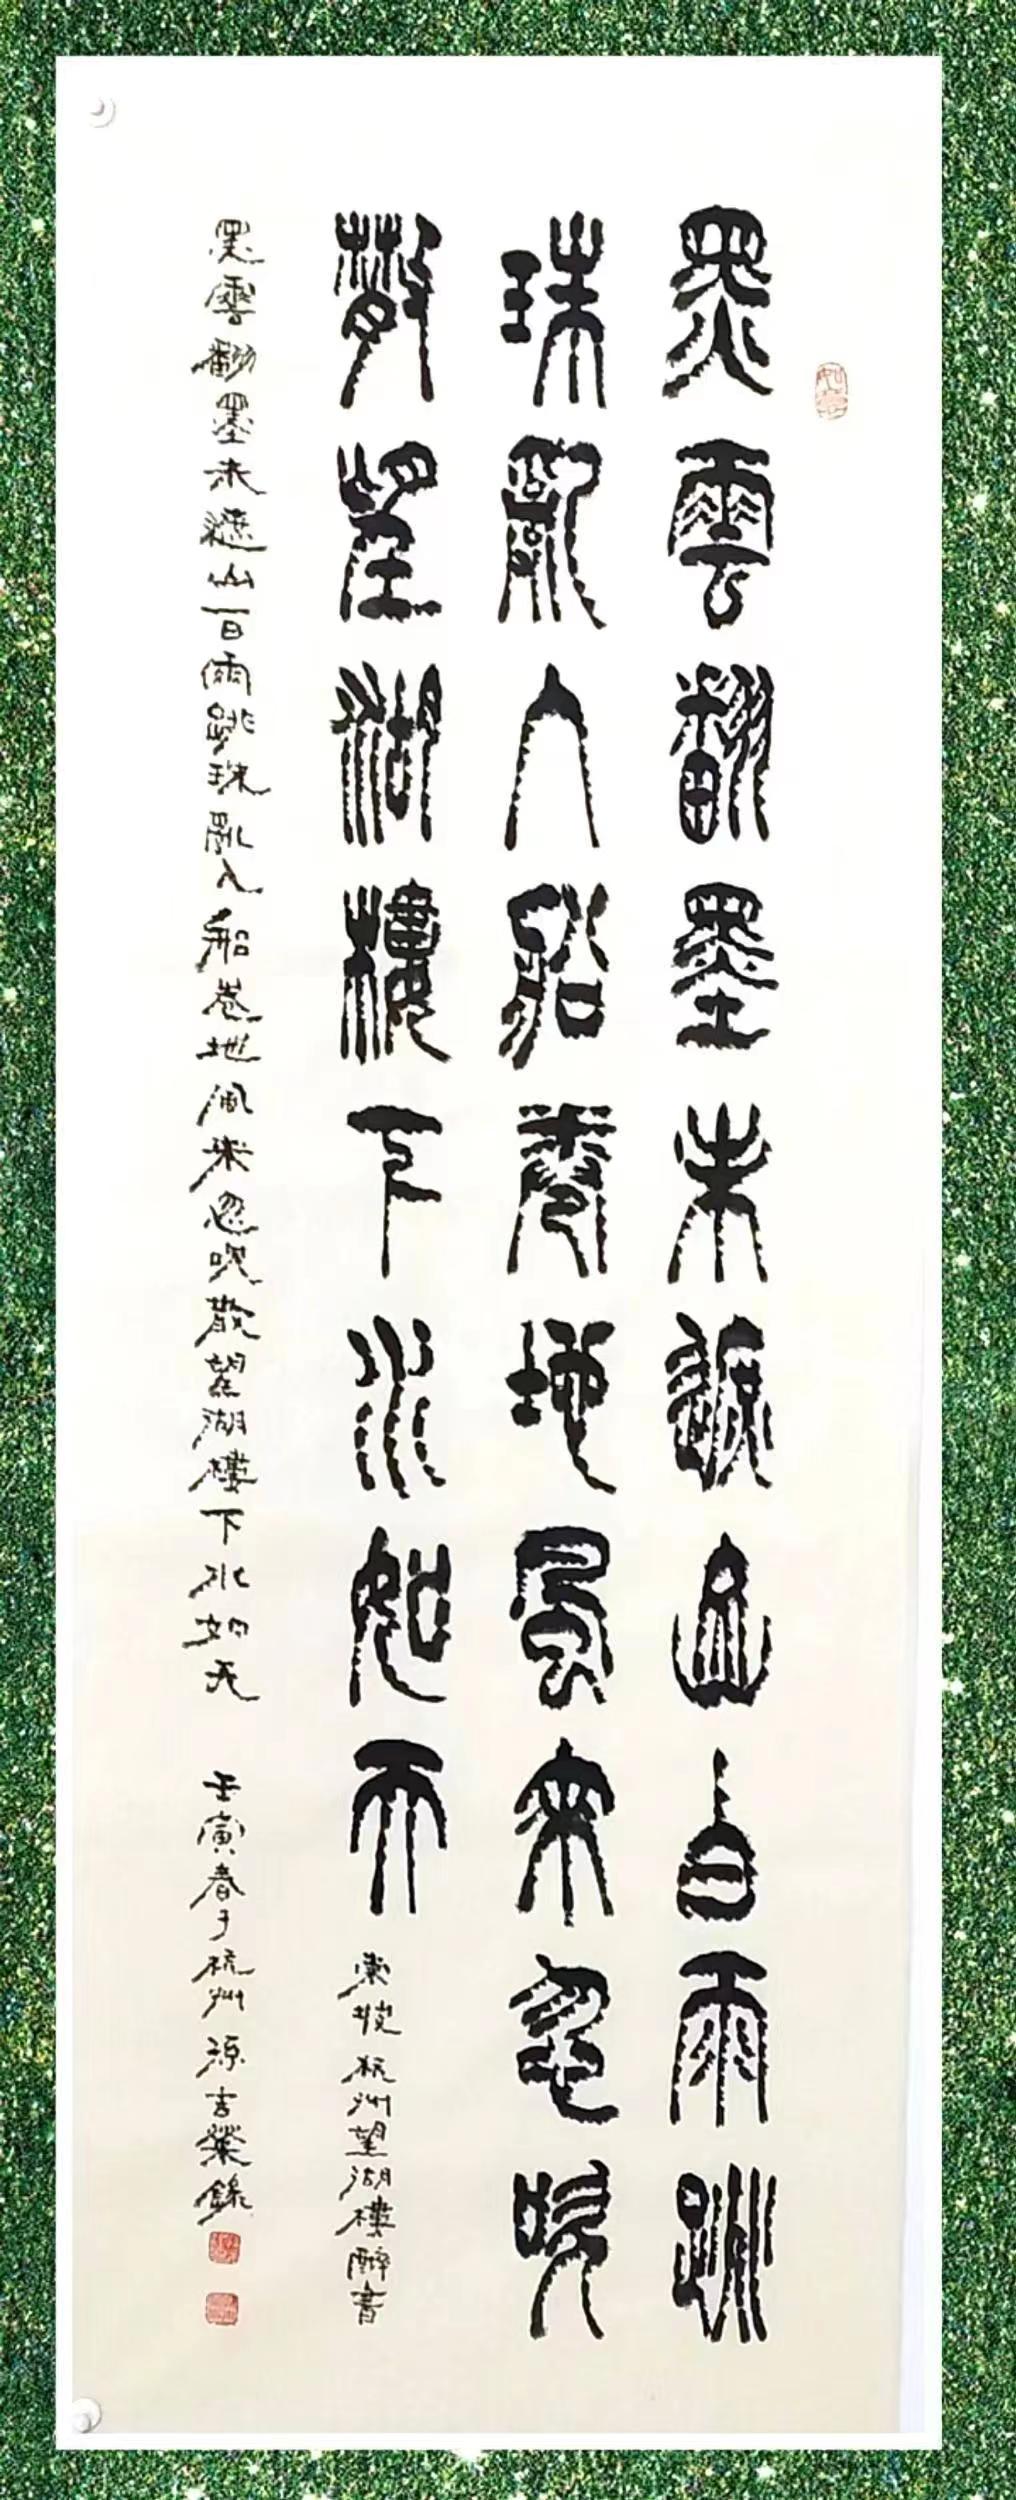 黑雲翻墨未遮山白雨跳
珠亂入船卷地風來忽吹
散望湖樓下水如天
東坡杭州望湖樓醉書
黑雲翻墨未遮山白雨跳珠亂入船卷地風来忽吹散望湖樓下水如天
壬寅春于杭州源吉榮錄